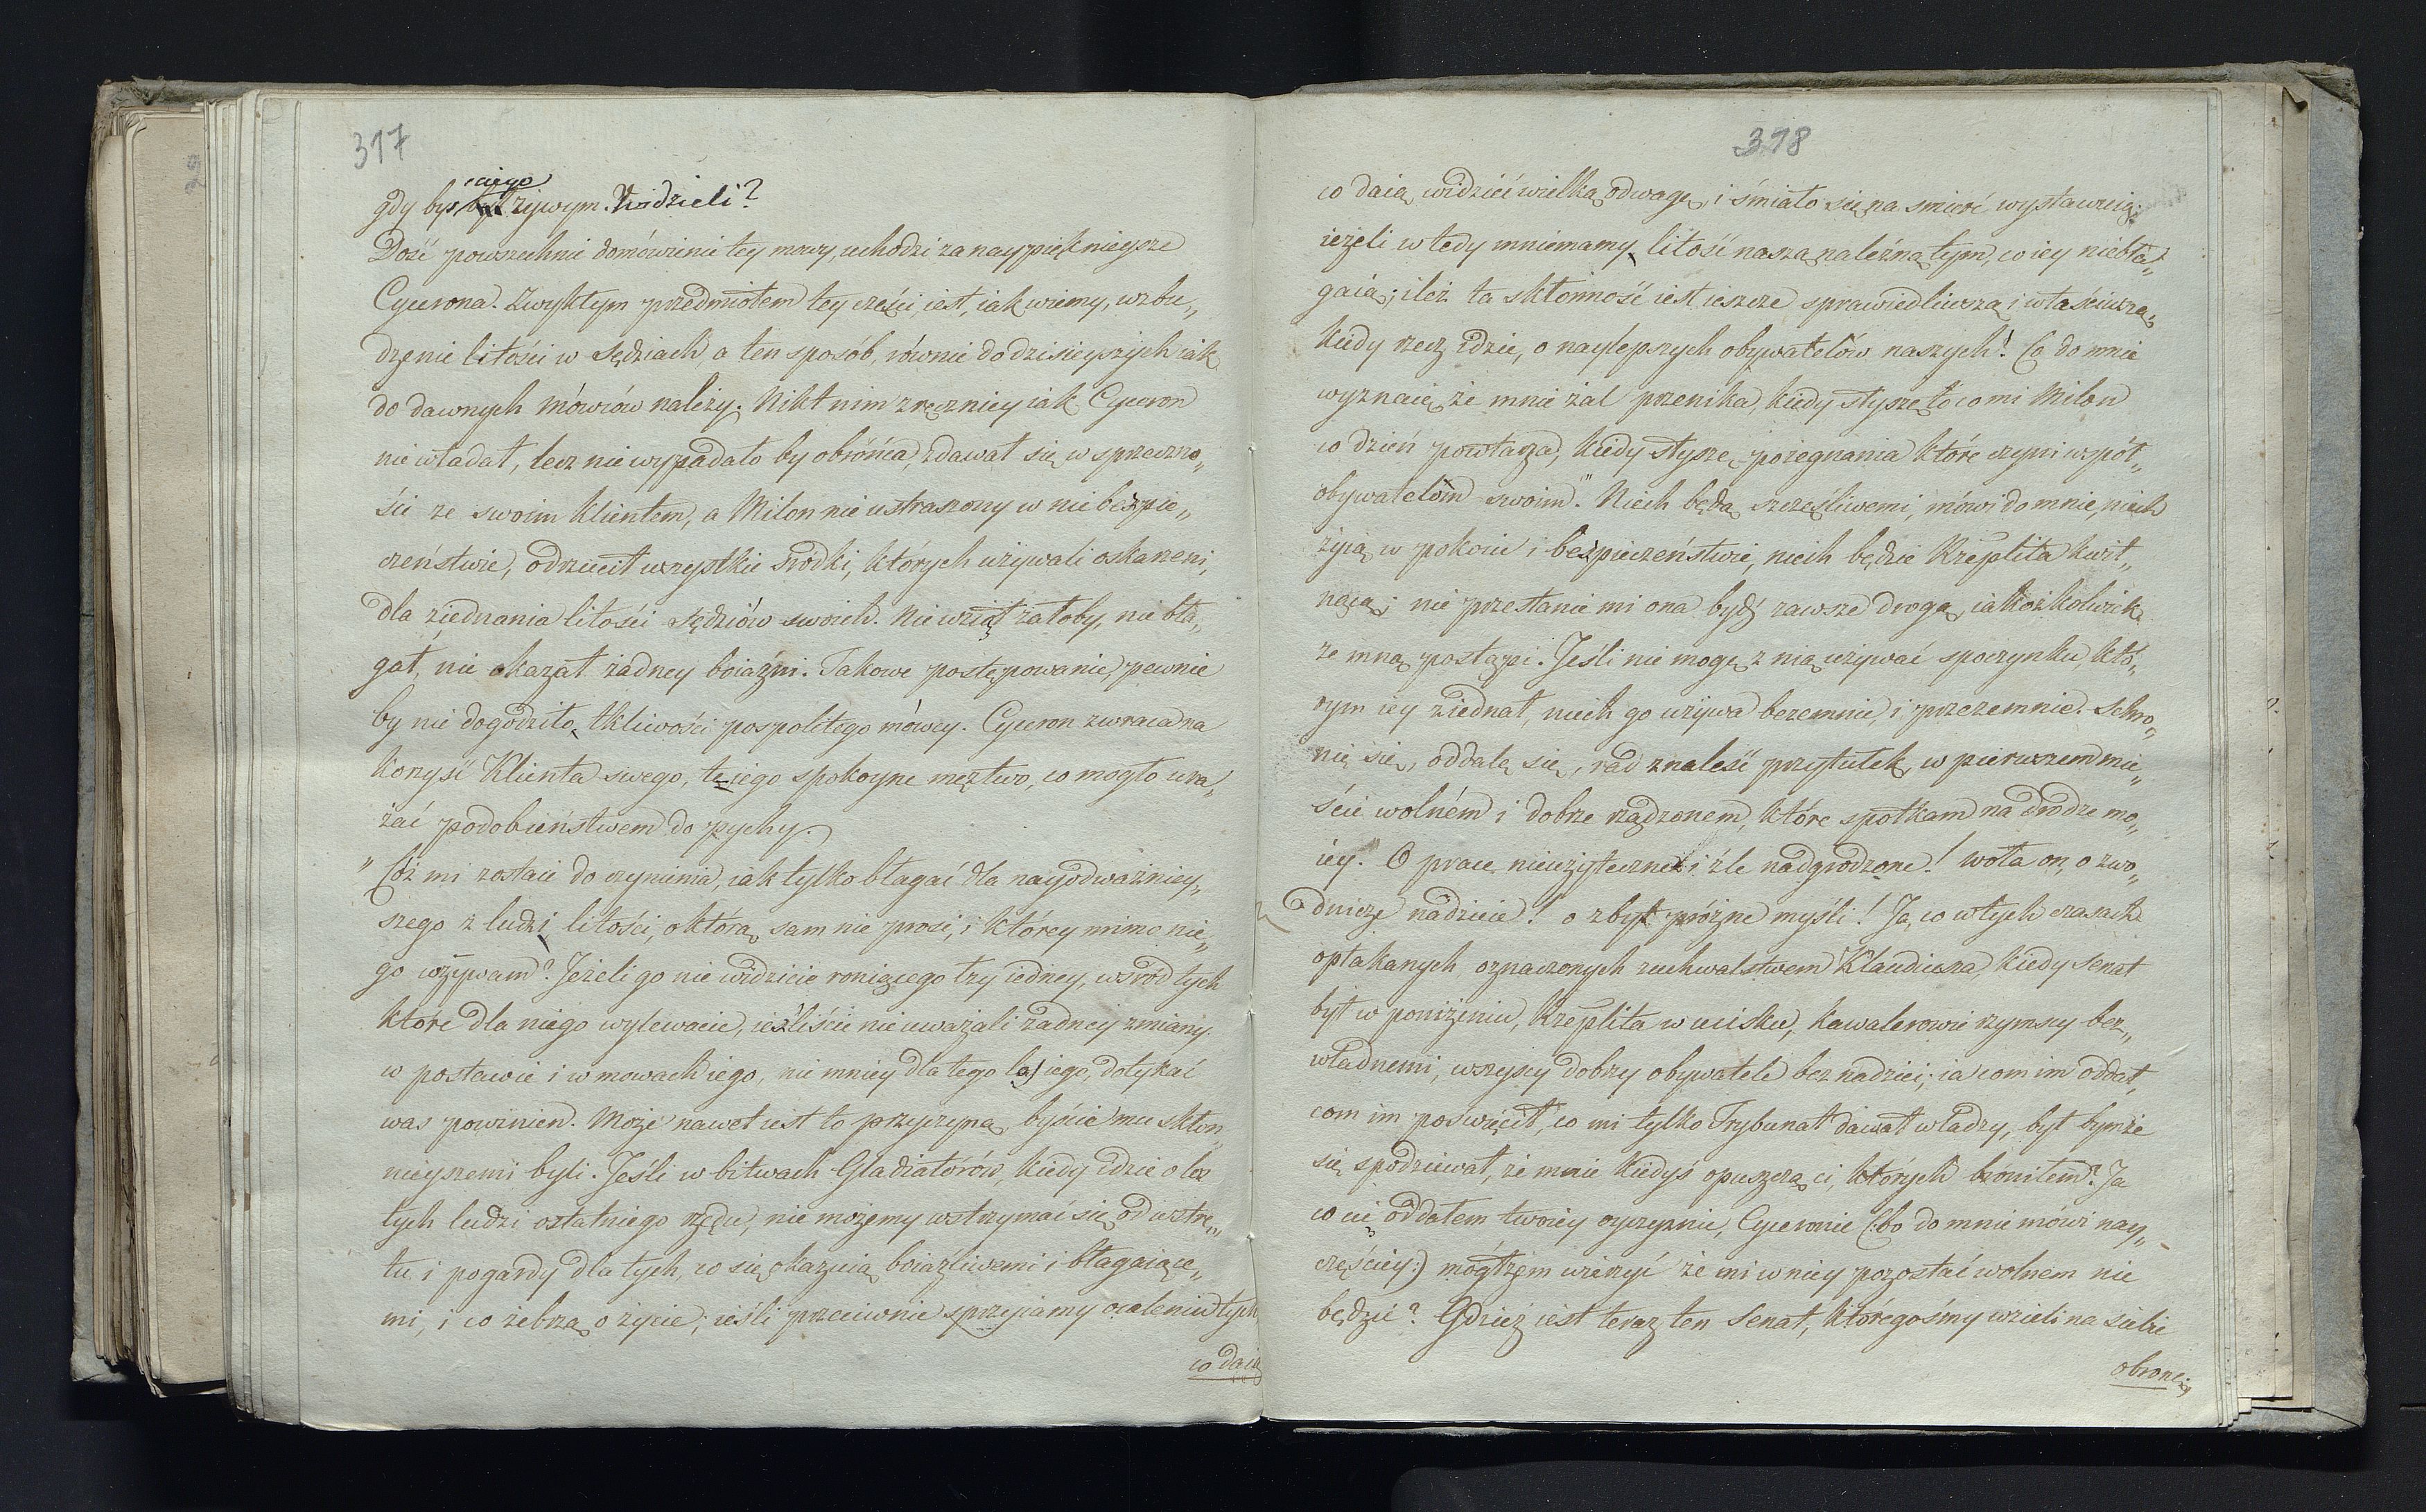 317
niego
gdy byś żywym. Widzieli?
Dość powszechnie domówienie tey mowy, uchodzi za naypiękniejsze
Cycerona. Zwykłym przedmiotem tey części, iest, iak wiemy, wzbu„
dzenie litości w Sędziach, a ten sposób, równie do dzisieyszych iak
do dawnych mówców należy. Nikt nim zręczniey iak Cyceron
nie władał, lecz nie wypadało by obrońca, zdawał się w sprzeczno„
ści ze swoim Klientem, a Milon nie ustraszony w niebezpie„
czeństwie, odrzucił wszystkie srodki, których używali oskarzeni,
dla ziednania litości sędziów swoich. Nie wziął żałoby, nie bła„
gał, nie okazał żadney boiaźni. Takowe postępowanie, pewnie
by nie dogodziło tkliwości pospolitego mówcy. Cyceron zwraca na
korzyść Klienta swego, te iego spokoyne męztwo, co mogło ura„
żać podobieństwem do pychy.
„Cóż mi zostaie do czynienia, iak tylko błagać dla nayodważniey„
szego z ludzi litości, o którą sam nie prosi, i którey mimo nie„
go wzywam? Jeżeli go nie widzicie roniącego łzy iedney, wśród tych
które dla niego wylewacie, ieśliście nie uważali żadney zmiany
w postawie i w mowach iego, nie mniey dla tego los iego, dotykać
was powinien. Może nawet iest to przyczyną, byście mu skłon„
nieyszemi byli. Jeśli w bitwach Gladiatorów, kiedy idzie o los
tych ludzi ostatniego rzędu, nie możemy wstrzymać się od wstrę„
tu i pogardy dla tych, co się okazuią boiaźliwemi i błagaiące„
mi, i co żebrzą o życie; ieśli przeciwnie sprzyiamy ocaleniu tych
co daią
318
co daią widzieć wielką odwagę, i śmiało się na smierć wystawuią;
ieżeli wtedy mniemamy, litość naszą należną tym, co iey niebła„
gaią; ileż ta skłonność iest ieszcze sprawiedliwszą i właściwszą,
kiedy rzecz idzie, o naylepszych obywatelów naszych! Co do mnie
wyznaię, że mnie żal przenika, kiedy słyszę to co mi Milon
co dzień powtarza, kiedy słyszę pożegnania które czyni współ„
obywatelóm swoim. „Niech będą szczęśliwemi, mówi do mnie, niech
żyią w pokoiu i bezpieczeństwie, niech będzie Rzeplita kwit„
nącą; nie przestanie mi ona bydź zawsze drogą, iakożkolwiek
ze mną postąpi. Jeśli nie mogę z nią używać spoczynku, któ„
rym iey ziednał, niech go używa bezemnie, i przezemnie. Schro„
nię się, oddalę się, rad znaleść przytułek, w pierwszem mie„
ście wolném i dobrze rządzonem, które spotkam na drodze mo„
iey. O prace nieużyteczne i źle nadgrodzone! woła on, o zwo„
dnicze nadzieie! o zbyt próżne myśli! Ja, co w tych czasach
opłakanych oznaczonych zuchwalstwem Klaudiusza, kiedy Senat
był w poniżeniu, Rzeplita w ucisku, Kawalerowie rzymscy bez„
władnemi, wszyscy dobrzy obywatele bez nadziei; ia com im oddał,
com im poswięcił, co mi tylko Trybunat dawał władzy, był bymże
się spodziewał, że mnie kiedyś opuszczą ci, których broniłem? Ja
co cię oddałem twoiey oyczyznie, Cyceronie (:bo do mnie mówi nay„
częściey:) mógłżem wierzyć że mi w niey pozostać wolnem nie
będzie? Gdzież iest teraz ten Senat, któregośmy wzieli na siebie
obronę;